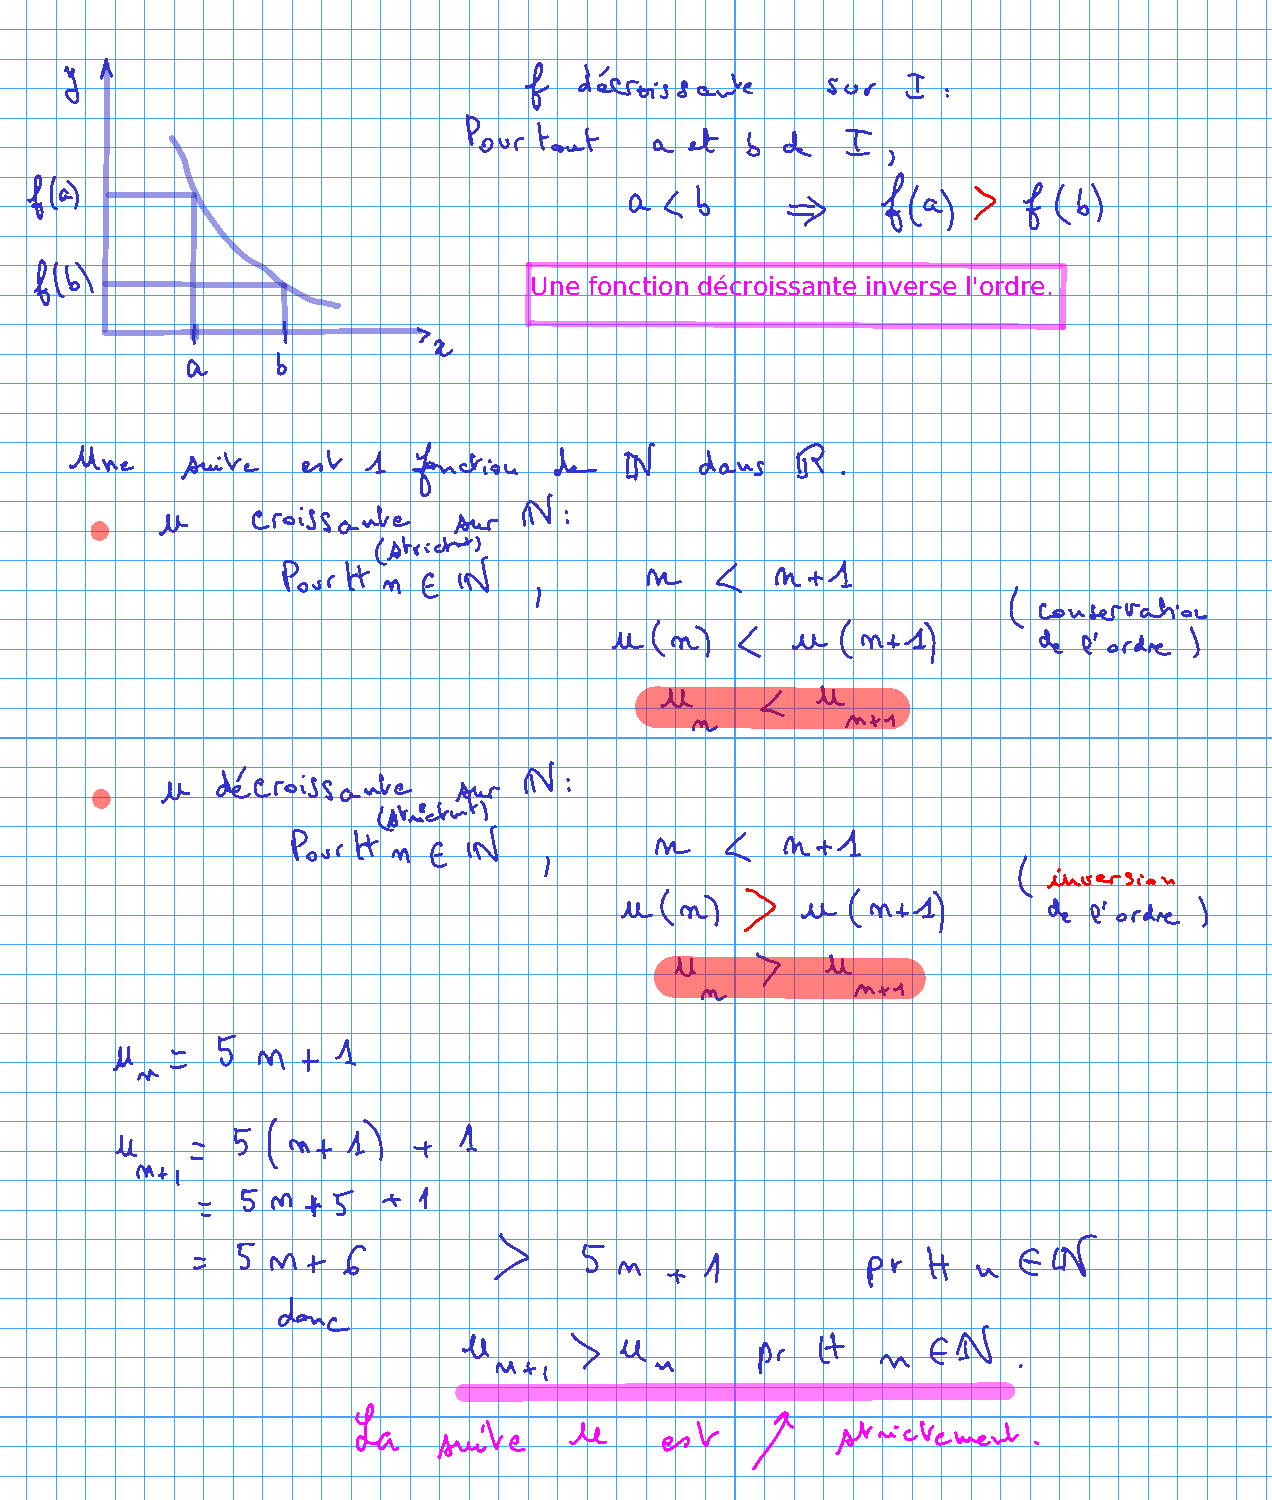 y
f décroissante sur I :
Pour tout a et b de I,
f(a)
a < b ⇒ f(a) > f(b)
f(b)
Une fonction décroissante inverse l'ordre.
x
a b
Une suite est 1 fonction de ℕ dans ℝ.
u croissante sur ℕ :
(strictt)
Pour tt n ∈ ℕ, n < n+1
u(n) < u(n+1) (conservation
de l'ordre)
u_n < u_{n+1}
u décroissante sur ℕ :
(strictmt)
Pour tt n ∈ ℕ, n < n+1
u(n) > u(n+1) (inversion
de l'ordre)
u_n > u_{n+1}
u_n = 5n + 1
u_{n+1} = 5(n+1) + 1
= 5n + 5 + 1
= 5n + 6 > 5n + 1 pr tt n ∈ ℕ
donc
u_{n+1} > u_n pr tt n ∈ ℕ.
La suite u est ↗ strictement.